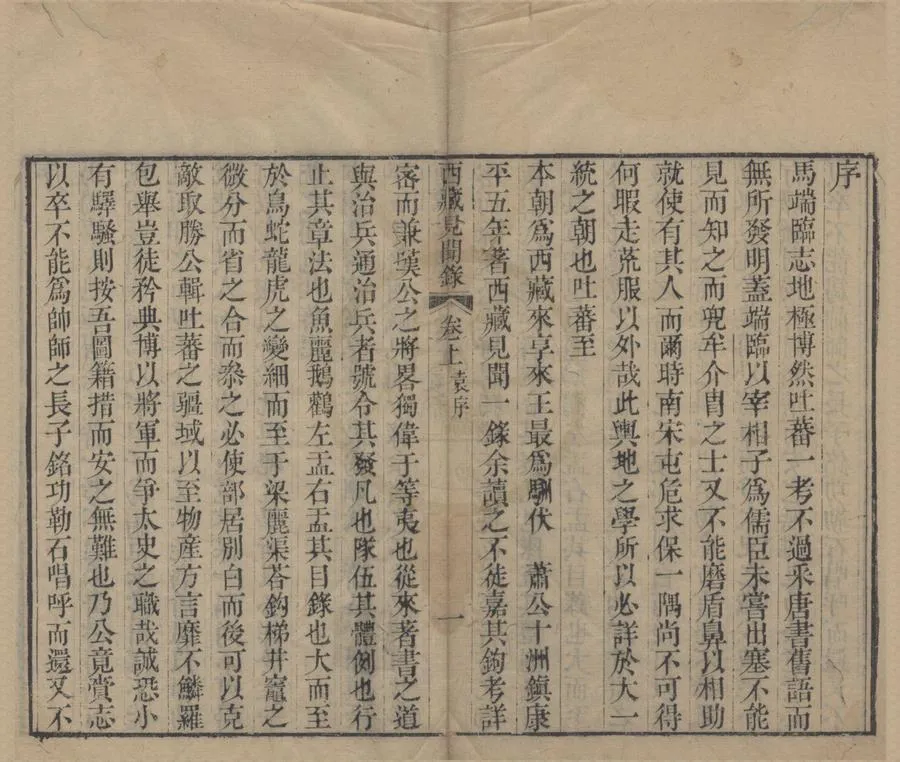 序
馬端臨志地極博然吐蕃一考不過采唐書舊語而
無所發明蓋端臨以宰相子爲儒臣未嘗出塞不能
見而知之而兜牟介胄之士又不能磨盾鼻以相助
就使有其人而爾時南宋屯危求保一隅尚不可得
何暇走荒服以外哉此輿地之學所以必詳於大一
統之朝也吐蕃至
本朝爲西藏來享來王最爲馴伏 蕭公十洲鎮康
平五年著西藏見聞一錄余讀之不徒嘉其鉤考詳
西藏見聞錄 卷上 袁序 一
密而兼嘆公之將畧獨偉于等夷也從來著書之道
與治兵通治兵者號令其發凡也隊伍其體例也行
止其章法也魚麗鵝鸛左盂右盂其目錄也大而至
於鳥蛇龍虎之變細而至于梁麗渠荅鈎梯井竈之
微分而省之合而叅之必使部居別白而後可以克
敵取勝公輯吐蕃之疆域以至物產方言靡不鱗羅
包舉豈徒矜典博以將軍而爭太史之職哉誠恐小
有驛騷則按吾圖籍措而安之無難也乃公竟賫志
以卒不能爲師師之長子銘功勒石唱呼而還又不